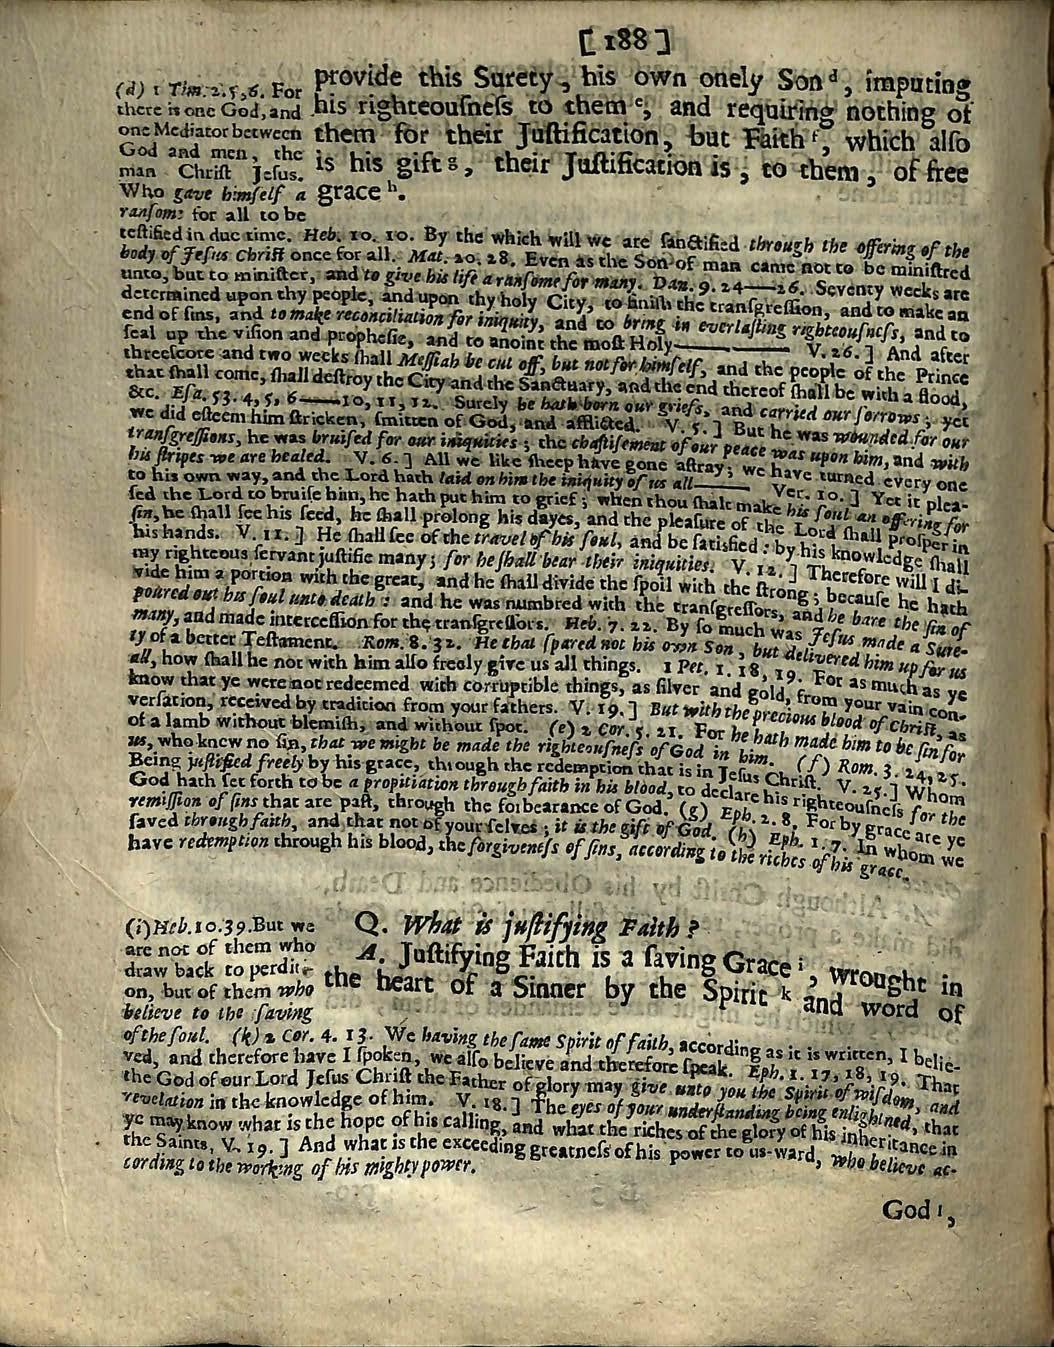 [ 188 ]
provide this Surety, his own onely Son d, imputing
his righteouſneſs to them e, and requiring nothing of
them for their Juſtification, but Faith f, which alſo
is his gift g, their Juſtification is, to them, of free
grace h.
(d) 1 Tim. 2. 5, 6. For
there is one God, and
one Mediator between
God and men, the
man Chriſt Jeſus.
Who gave himſelf a
ranſome for all to be
teſtified in due time. Heb. 10. 10. By the which will we are ſanctified through the offering of the
body of Jeſus Chriſt once for all. Mat. 20. 28. Even as the Son of man came not to be miniſtred
unto, but to miniſter, and to give his life a ranſome for many. Dan. 9. 24——26. Seventy weeks are
determined upon thy people, and upon thy holy City, to finiſh the tranſgreſſion, and to make an
end of ſins, and to make reconciliation for iniquity, and to bring in everlaſting righteouſneſs, and to
ſeal up the viſion and propheſie, and to anoint the moſt Holy———— V. 26. ] And after
threeſcore and two weeks ſhall Meſſiah be cut off, but not for himſelf, and the people of the Prince
that ſhall come, ſhall deſtroy the City and the Sanctuary, and the end thereof ſhall be with a flood,
&c. Eſa. 53. 4, 5, 6——10, 11, 12. Surely he hath born our griefs, and carried our ſorrows; yet
we did eſteem him ſtricken, ſmitten of God, and afflicted. V. 5. ] But he was wounded for our
tranſgreſſions, he was bruiſed for our iniquities; the chaſtiſement of our peace was upon him, and with
his ſtripes we are healed. V. 6. ] All we like ſheep have gone aſtray; we have turned every one
to his own way, and the Lord hath laid on him the iniquity of us all—— Ver. 10. ] Yet it plea-
ſed the Lord to bruiſe him, he hath put him to grief; when thou ſhalt make his ſoul an offering for
ſin, he ſhall ſee his ſeed, he ſhall prolong his dayes, and the pleaſure of the Lord ſhall proſper in
his hands. V. 11. ] He ſhall ſee of the travel of his ſoul, and be ſatisfied: by his knowledge ſhall
my righteous ſervant juſtifie many; for he ſhall bear their iniquities. V. 12. ] Therefore will I di-
vide him a portion with the great, and he ſhall divide the ſpoil with the ſtrong; becauſe he hath
poured out his ſoul unto death: and he was numbred with the tranſgreſſors, and he bare the ſin of
many, and made interceſſion for the tranſgreſſors. Heb. 7. 22. By ſo much was Jeſus made a Sure-
ty of a better Teſtament. Rom. 8. 32. He that ſpared not his own Son, but delivered him up for us
all, how ſhall he not with him alſo freely give us all things. 1 Pet. 1. 18, 19. For as much as ye
know that ye were not redeemed with corruptible things, as ſilver and gold, from your vain con-
verſation, received by tradition from your fathers. V. 19. ] But with the precious blood of Chriſt, as
of a lamb without blemiſh, and without ſpot. (e) 2 Cor. 5. 21. For he hath made him to be ſin for
us, who knew no ſin, that we might be made the righteouſneſs of God in him. (f) Rom. 3. 24, 25.
Being juſtified freely by his grace, through the redemption that is in Jeſus Chriſt. V. 25. ] Whom
God hath ſet forth to be a propitiation through faith in his blood, to declare his righteouſneſs for the
remiſſion of ſins that are paſt, through the forbearance of God. (g) Eph. 2. 8. For by grace are ye
ſaved through faith, and that not of your ſelves; it is the gift of God. (h) Eph. 1. 7. In whom we
have redemption through his blood, the forgiveneſs of ſins, according to the riches of his grace.
Q. What is juſtifying Faith?
A. Juſtifying Faith is a ſaving Grace i, wrought in
the heart of a Sinner by the Spirit k and word of
(i) Heb. 10. 39. But we
are not of them who
draw back to perditi-
on, but of them who
believe to the ſaving
of the ſoul. (k) 2 Cor. 4. 13. We having the ſame Spirit of faith, according as it is written, I belie-
ved, and therefore have I ſpoken, we alſo believe and therefore ſpeak. Eph. 1. 17, 18, 19. That
the God of our Lord Jeſus Chriſt the Father of glory may give unto you the Spirit of wiſdom, and
revelation in the knowledge of him. V. 18. ] The eyes of your underſtanding being enlightned, that
ye may know what is the hope of his calling, and what the riches of the glory of his inheritance in
the Saints, V. 19. ] And what is the exceeding greatneſs of his power to us-ward, who believe ac-
cording to the working of his mighty power.
God l,